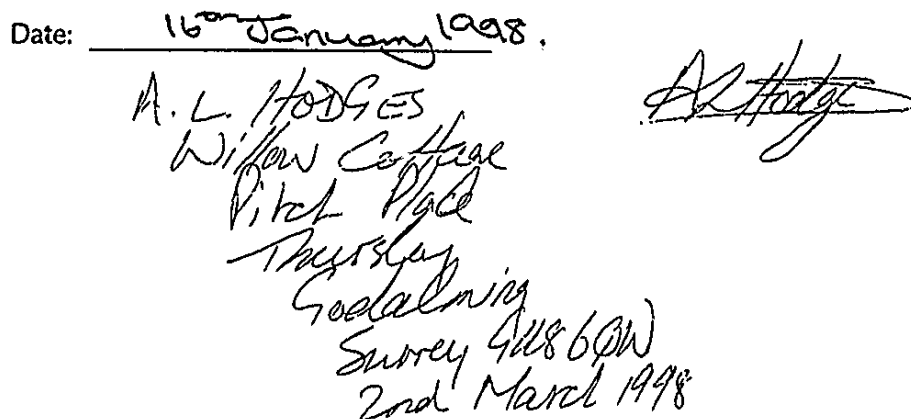 Date: 16th January 1998.
A. L. HODGES
AL Hodge
Willow Cottage
Pitch Place
Thursley
Godalming
Surrey GU8 6QW
2nd March 1998